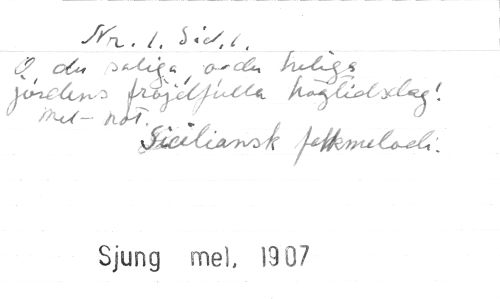 Nr. 1. Sid. 1.
O du saliga, o du heliga
jordens fröjdfulla högtidsdag!
Mel- not.
Siciliansk folkmelodi.
Sjung mel. 1907